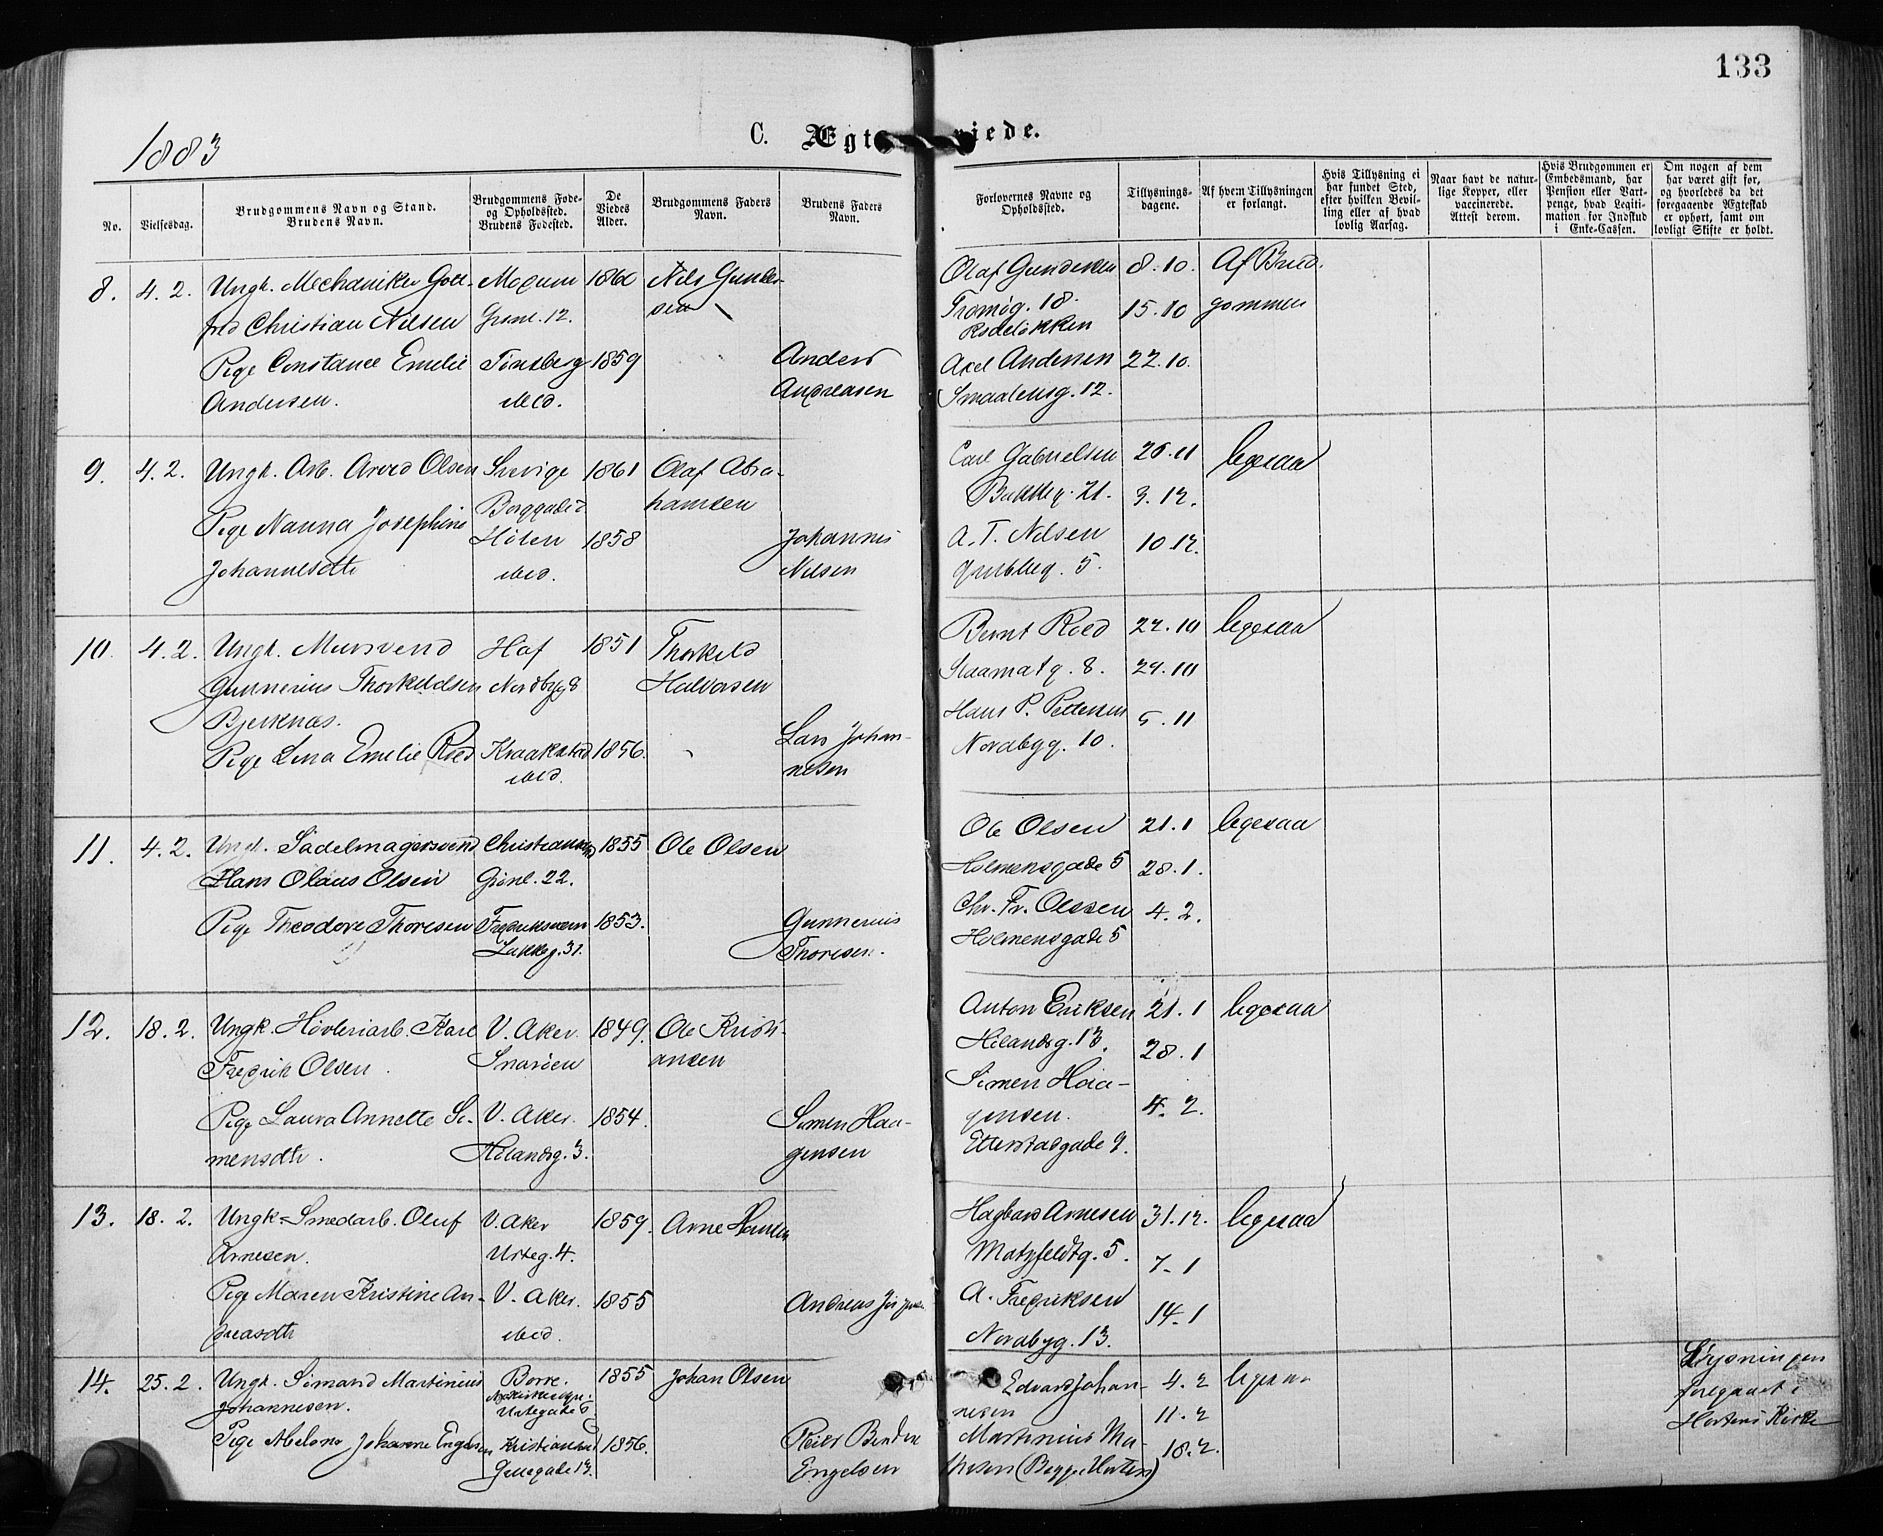 133
1883
C. Ægt viede.
No.
Vielsesdag.
Brudgommens Navn og Stand.
Brudens Navn.
Brudgommens Føde-
og Opholdssted.
Brudens Fødested.
De
Viedes
Alder.
Brudgommens Faders
Navn.
Brudens Faders
Navn.
Forlovernes Navne og
Opholdssted.
Tillysnings-
dagene.
Af hvem Tillysningen
er forlangt.
Hvis Tillysning ei
har fundet Sted,
efter hvilken Bevil-
ling eller af hvad
lovlig Aarsag.
Naar havt de natur-
lige Kopper, eller
vaccinerede.
Attest derom.
Hvis Brudgommen er
Embedsmand, har
Pension eller Vart-
penge, hvad Legiti-
mation for Indskud
i Enke-Cassen.
Om nogen af dem
har været gift før,
og hvorledes da det
foregaaende Ægteskab
er ophørt, samt om
lovligt Skifte er holdt.
8. 4.2. Ungk. Mechaniker Gott- Modum 1860 Nils Gunder- Olaf Gundersen 8.10. Af Brud-
fred Christian Nilsen Grønl. 12. sen Tromsøg. 18. 15.10 gommen
Rodeløkken
Pige Constance Emelie Tønsberg 1859 Anders Axel Andersen 22.10.
Andersen. ibid. Andreasen Smaalensg. 12.
9. 4.2. Ungk. Arb. Arvid Olsen Sverige 1861 Olaf Abra- Carl Gabrielsen 26.11 ligesaa
Borggade hamsen 21. 3.12.
Pige Nanna Josephine Hølen 1858 Johannes A. T. Nilsen 10.12.
Johannesdtr ibid. Nilsen Grubbeg. 5.
10. 4.2. Ungk. Mursvend 1851 Thorkeld Bernt Roed 22.10 ligesaa
Gunnerius Thorkeldsen Nordbyg 8 Halvorsen 8. 29.10
Bjerknæs. Hans P. Pettersen 5.11
Pige Lina Emelie Roed Kraakstad 1856. Lars Johan- Nordbyg. 10.
ibid. nesen
11. 4.2. Ungk. Sadelmagersvend Christiania 1855 Ole Olsen Ole Olsen 21.1 ligesaa
Hans Olaus Olsen Grønl. 22. Holmensgade 5 28.1.
Pige Theodore Thoresen Frederiksværn 1853. Gunnerius Chr. Fr. Olssen 4.2.
Lakkeg. 31. Thoresen. Holmensgade 5
12. 18.2. Ungk. Høvleriarb. Karl V. Aker. 1849. Ole Kristi- Anton Eriksen 21.1 ligesaa
Fredrik Olsen. Snarøen ansen Hølandsg. 13. 28.1
Simen Haa-
Pige Laura Annette Si- V. Aker. 1854. Simen Haa- gensen. 4.2.
mensdtr. Hølandsg. 3. gensen Etterstadgade 9.
13. 18.2. Ungk. Smedarb. Oluf V. Aker 1859. Arne Hansen Hagbard Arnesen 31.12. ligesaa
Arnesen. Urteg. 4. Motzfeldtg. 5. 7.1
Pige Maren Kristine An- V. Aker. 1855 Andreas A. Fredriksen 14.1
dreasdtr ibid. Nordbyg. 13.
14. 25.2. Ungk. Sømand Martinius Borre. 1855 Johan Olsen Edvard Johan- 4.2 ligesaa Lysningen
Johannesen. Urtegade 6 nesen 11.2 foregaaet i
Pige Johanne Engelsen Kristiansund 1856. Martinius Ma- 18.2. Hortens Kirke
13. Engelsen thesen (Begge Horten)